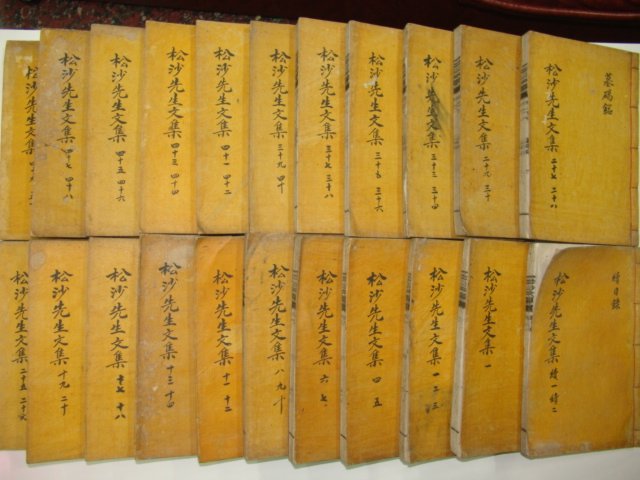 墓碣銘
松沙先生文集 二十七 二十八
松沙先生文集 二十九 三十
松沙先生文集 三十三 三十四
松沙先生文集 三十五 三十六
松沙先生文集 三十七 三十八
松沙先生文集 三十九 四十
松沙先生文集 四十一 四十二
松沙先生文集 四十三 四十四
松沙先生文集 四十五 四十六
松沙先生文集 四十七 四十八
松沙先生文集 四十九
目錄
松沙先生文集 續一 續二
松沙先生文集 一
松沙先生文集 一 二 三
松沙先生文集 四 五
松沙先生文集 六 七
松沙先生文集 八 九 十
松沙先生文集 十一 十二
松沙先生文集 十三 十四
松沙先生文集 十七 十八
松沙先生文集 十九 二十
松沙先生文集 二十五 二十六